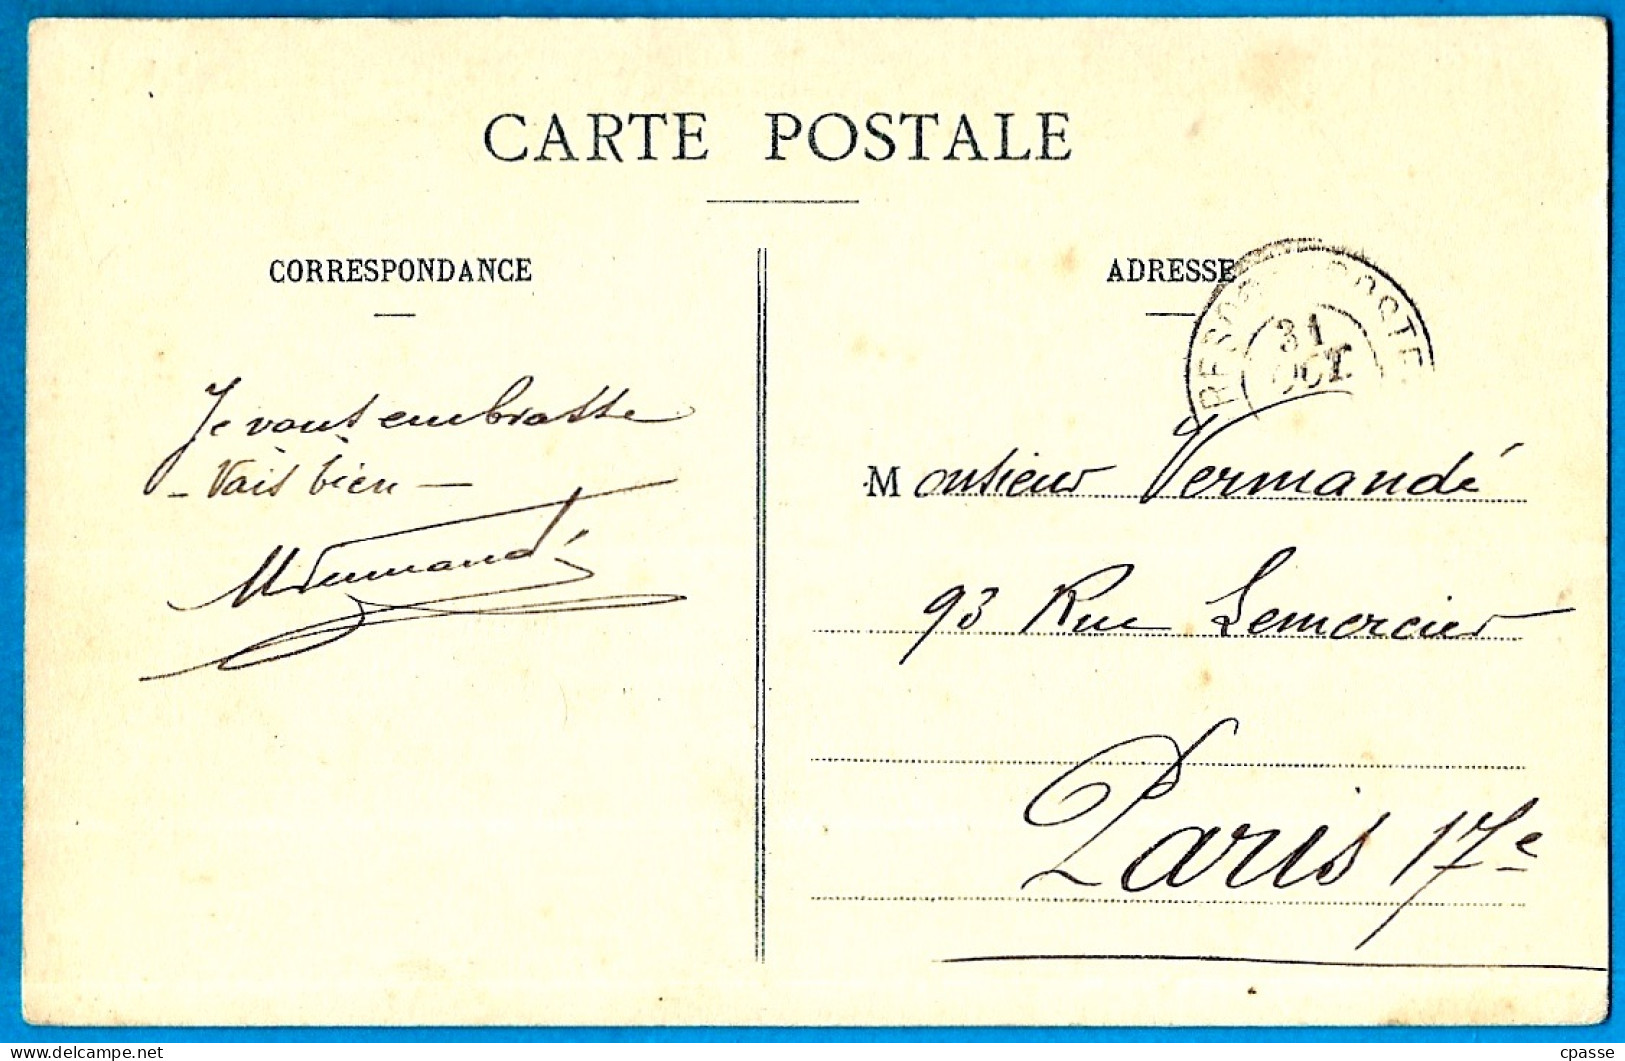 CARTE POSTALE
CORRESPONDANCE
ADRESSE
31
OCT.
Je vous embrasse
- Vais bien -
Vermandé
Monsieur Vermandé
93 Rue Lemercier
Paris 17e
delcampe.net
cpasse